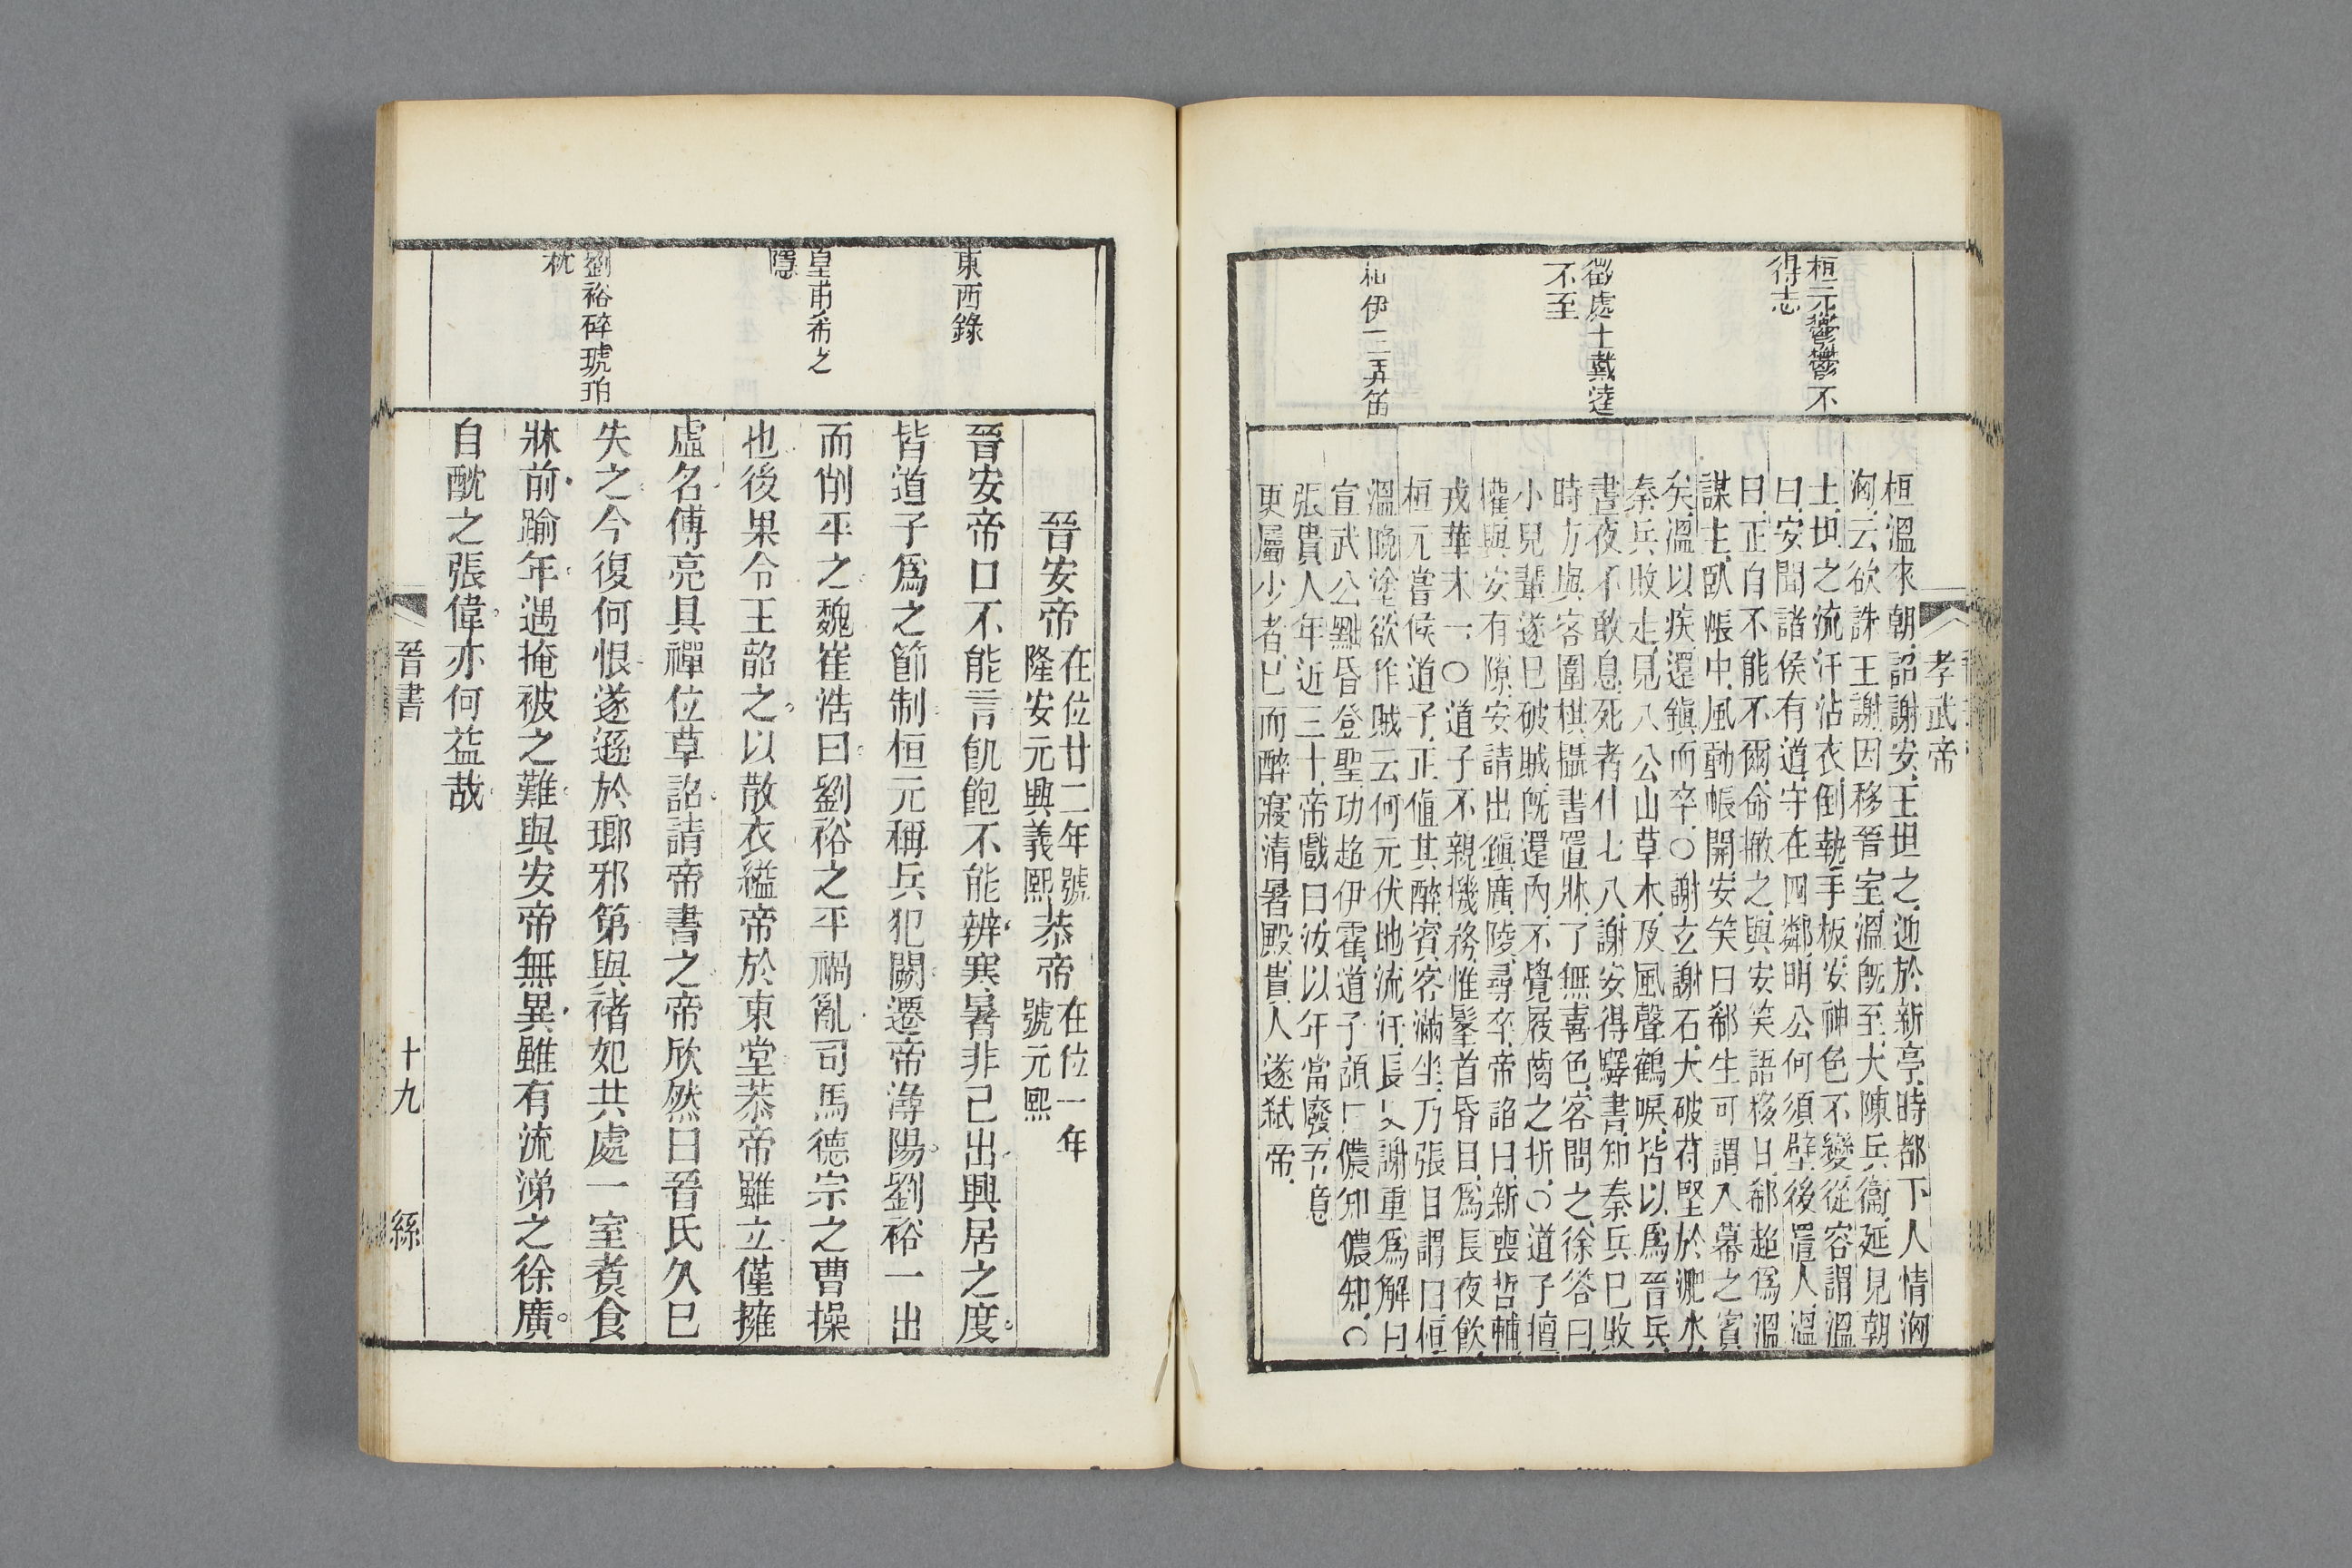 孝武帝
桓元鬱鬱不
得志
徵處士戴逵
不至
伊三弄笛
桓溫來朝詔謝安王坦之迎於新亭時都下人情洶
洶云欲誅王謝因移晉室溫既至大陳兵衞延見朝
士坦之流汗沾衣倒執手板安神色不變從容謂溫
曰安聞諸侯有道守在四鄰明公何須壁後置人溫
曰正自不能不爾命撤之與安笑語移日郗超爲溫
謀主臥帳中風動帳開安笑曰郗生可謂入幕之賓
矣溫以疾還鎮而卒○謝玄謝石大破苻堅於淝水
秦兵敗走見八公山草木及風聲鶴唳皆以爲晉兵
晝夜不敢息死者什七八謝安得驛書知秦兵已敗
時方與客圍棋攝書置牀了無喜色客問之徐答曰
小兒輩遂已破賊既還內不覺屐齒之折○道子擅
權與安有隙安請出鎮廣陵尋卒帝詔曰新喪哲輔
戎華未一○道子不親機務惟髦首昏目爲長夜飲
桓元嘗候道子正値其醉賓客滿坐乃張目謂曰桓
溫晚塗欲作賊云何元伏地流汗長史謝重爲解曰
宣武公黜昏登聖功超伊霍道子頷曰儂知儂知○
張貴人年近三十帝戲曰汝以年當廢吾意
更屬少者已而醉寢清暑殿貴人遂弑帝
東西錄
皇甫希之
隱
劉裕碎琥珀
枕
晉安帝在位廿二年號
隆安元興義熙恭帝在位一年
號元熙
晉安帝口不能言飢飽不能辨寒暑非己出興居之度
皆道子爲之節制桓元稱兵犯闕遷帝潯陽劉裕一出
而削平之魏崔浩曰劉裕之平禍亂司馬德宗之曹操
也後果令王韶之以散衣縊帝於東堂恭帝雖立僅擁
虛名傅亮具禪位草詔請帝書之帝欣然曰晉氏久已
失之今復何恨遂遜於瑯邪第與褚妃共處一室煑食
牀前踰年遇掩被之難與安帝無異雖有流涕之徐廣
自酖之張偉亦何益哉
晉書
十九